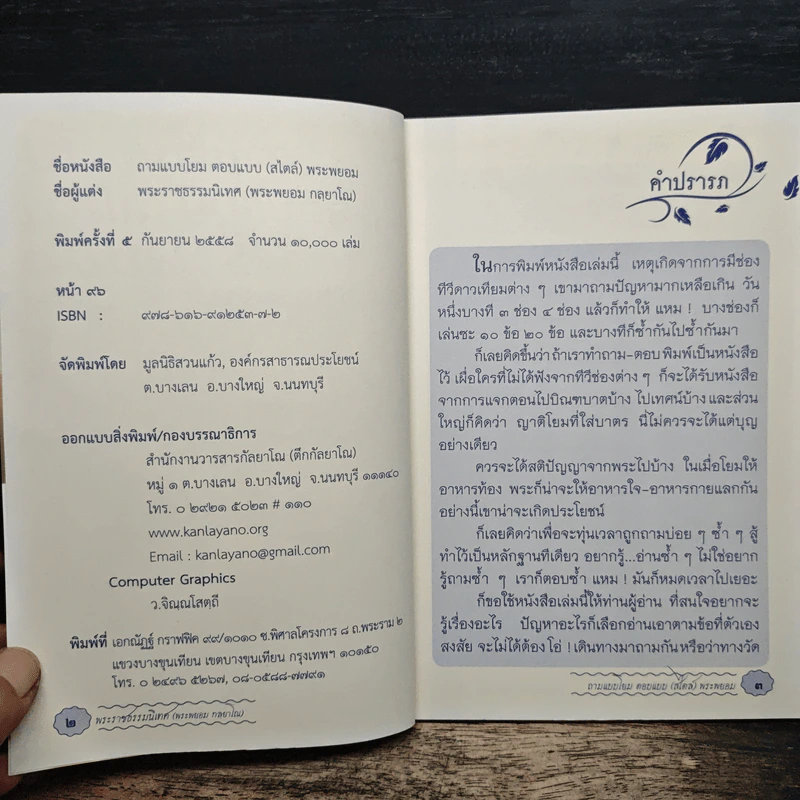 ชื่อหนังสือ ถามแบบโยม ตอบแบบ (สไตล์) พระพยอม
ชื่อผู้แต่ง พระราชธรรมนิเทศ (พระพยอม กลฺยาโณ)
พิมพ์ครั้งที่ ๕ กันยายน ๒๕๕๘ จำนวน ๑๐,๐๐๐ เล่ม
หน้า ๙๖
ISBN : ๙๗๘-๖๑๖-๙๑๒๕๓-๗-๒
จัดพิมพ์โดย มูลนิธิสวนแก้ว, องค์กรสาธารณประโยชน์
ต.บางเลน อ.บางใหญ่ จ.นนทบุรี
ออกแบบสิ่งพิมพ์/กองบรรณาธิการ
สำนักงานวารสารกัลยาโณ (ตึกกัลยาโณ)
หมู่ ๑ ต.บางเลน อ.บางใหญ่ จ.นนทบุรี ๑๑๑๔๐
โทร. ๐ ๒๙๒๑ ๕๐๒๓ # ๑๑๐
www.kanlayano.org
Email : kanlayano@gmail.com
Computer Graphics
ว.จิณฺณโสตฺถี
พิมพ์ที่ เอกณัฏฐ์ กราฟฟิค ๙๙/๑๐๑๐ ซ.พิศาลโครงการ ๘ ถ.พระราม ๒
แขวงบางขุนเทียน เขตบางขุนเทียน กรุงเทพฯ ๑๐๑๕๐
โทร. ๐ ๒๔๙๖ ๕๒๖๗, ๐๘-๐๕๘๘-๗๗๙๑
๒ พระราชธรรมนิเทศ (พระพยอม กลฺยาโณ)
คำปรารภ
ในการพิมพ์หนังสือเล่มนี้ เหตุเกิดจากการมีช่อง
ทีวีดาวเทียมต่าง ๆ เขามาถามปัญหามากเหลือเกิน วัน
หนึ่งบางที ๓ ช่อง ๔ ช่อง แล้วก็ทำให้ แหม ! บางช่องก็
เล่นซะ ๑๐ ข้อ ๒๐ ข้อ และบางทีก็ซ้ำกันไปซ้ำกันมา
ก็เลยคิดขึ้นว่า ถ้าเราทำถาม-ตอบ พิมพ์เป็นหนังสือ
ไว้ เผื่อใครที่ไม่ได้ฟังจากทีวีช่องต่าง ๆ ก็จะได้รับหนังสือ
จากการแจกตอนไปบิณฑบาตบ้าง ไปเทศน์บ้าง และส่วน
ใหญ่ก็คิดว่า ญาติโยมที่ใส่บาตร นี่ไม่ควรจะได้แต่บุญ
อย่างเดียว
ควรจะได้สติปัญญาจากพระไปบ้าง ในเมื่อโยมให้
อาหารท้อง พระก็น่าจะให้อาหารใจ-อาหารกายแลกกัน
อย่างนี้เขาน่าจะเกิดประโยชน์
ก็เลยคิดว่าเพื่อจะทุ่นเวลาถูกถามบ่อย ๆ ซ้ำ ๆ สู้
ทำไว้เป็นหลักฐานทีเดียว อยากรู้...อ่านซ้ำ ๆ ไม่ใช่อยาก
รู้ถามซ้ำ ๆ เราก็ตอบซ้ำ แหม ! มันก็หมดเวลาไปเยอะ
ก็ขอใช้หนังสือเล่มนี้ให้ท่านผู้อ่าน ที่สนใจอยากจะ
รู้เรื่องอะไร ปัญหาอะไรก็เลือกอ่านเอาตามข้อที่ตัวเอง
สงสัย จะไม่ได้ต้อง โอ่ ! เดินทางมาถามกัน หรือว่าทางวัด
ถามแบบโยม ตอบแบบ (สไตล์) พระพยอม ๓